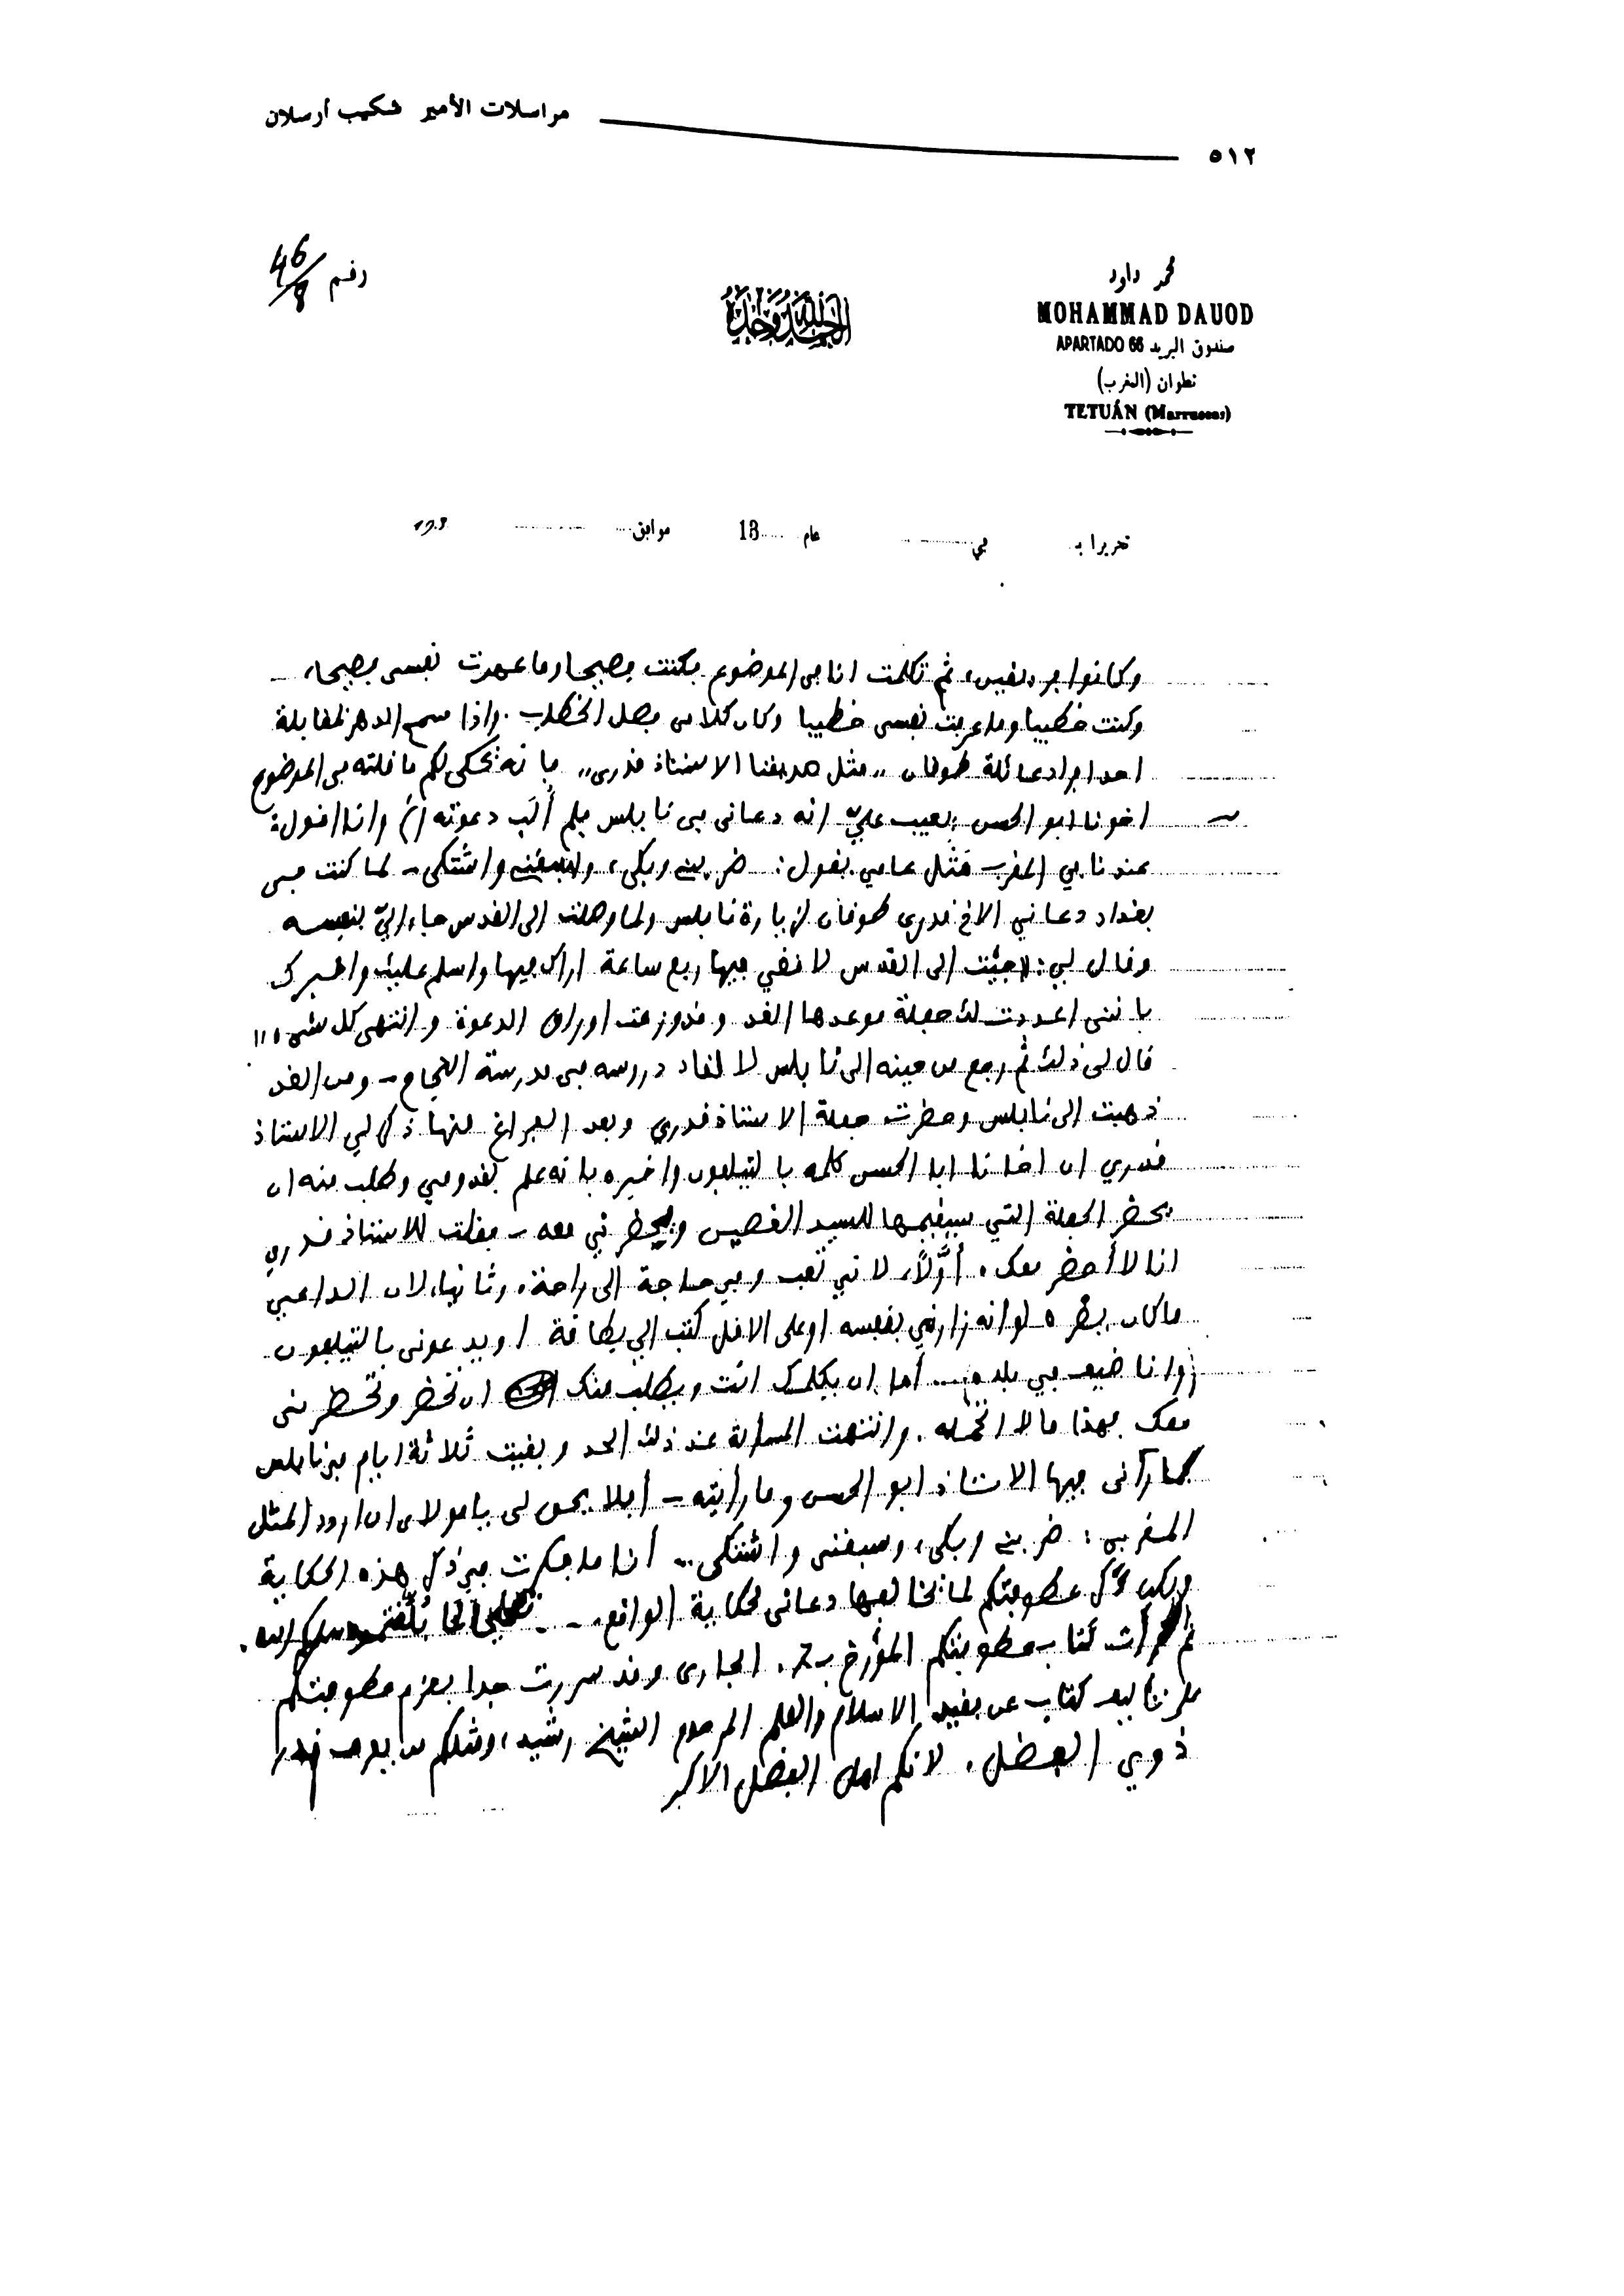 مراسلات الأمير شكيب أرسلان
٥١٢
رقم 46/8
محمد داود
MOHAMMAD DAUOD
صندوق البريد APARTADO 66
تطوان (المغرب)
TETUÁN (Marruecos)
الحمد لله وحده
تحريرا بـ في عام 13 موافق 193
وكانوا موردنفيس، ثم تكلمت انا في الموضوع فكنت فصيحا وما عهدت نفسي فصيحا،
وكنت خطيبا وما عرفت نفسي خطيبا وكان كلامي فصل الخطاب. واذا سمح الدهر بمقابلة
احد افراد عائلة طوقان ,,مثل صديقنا الاستاذ قدري,, فانه يحكي لكم ما قلته في الموضوع
اخونا ابو الحسن يعيب عليّ انه دعاني في نابلس فلم أُلَبِّ دعوته وانا اقول:
عندنا في المغرب مَثَل عامي يقول: ضربني وبكى، وسبقني واشتكى – لما كنت في
بغداد دعاني الاخ قدري طوقان لزيارة نابلس ولما وصلت الى القدس جاء اليّ بنفسه
وقال لي: جئت الى القدس لاقضي فيها ربع ساعة اراك فيها واسلم عليك واخبرك
بانني اعددت لك حفلة موعدها الغد وقد وزعت اوراق الدعوة وانتهى كل شيء !!
قال لي ذلك ثم رجع من حينه الى نابلس لالقاء دروسه في مدرسة النجاح – ومن الغد
ذهبت الى نابلس وحضرت حفلة الاستاذ قدري وبعد الفراغ منها ذكر لي الاستاذ
قدري ان اخانا ابا الحسن كلمه بالتيلفون واخبره بانه علم بقدومي وطلب منه ان
يحضر الحفلة التي سيقيمها للسيد الغصين ويحضرني معه – فقلت للاستاذ قدري
انا لا أحضر معك. أوَّلاً، لاني تعب وفي حاجة الى راحة. وثانيا، لان الداعي
ما كان يضره لو انه زارني بنفسه او على الاقل كتب الي بطاقة او يدعوني بالتيلفون
وانا ضيف في بلده .... أما ان يكلمك انت ويطلب منك ان تحضر وتحضرني
معك فهذا ما لا اتحمله. وانتهت المسألة عند ذلك الحد وبقيت ثلاثة ايام في نابلس
فما رآني فيها الاستاذ ابو الحسن وما رأيته – أفلا يحق لي يا مولاي ان اردد المثل
المغربي: ضربني وبكى، وسبقني واشتكى .. أنا ما فكرت في ذكر هذه الحكاية
ولكن ذكر عطوفتكم لما دعاني لحكاية الواقع ...
ثم قرأت كتاب عطوفتكم المؤرخ بـ 2. الجاري وقد سررت جدا بعزم عطوفتكم
على تاليف كتاب عن فقيد الاسلام والعلم المرحوم الشيخ رشيد، ومثلكم من يعرف قدر
ذوي الفضل. لانكم اهل الفضل الاكبر